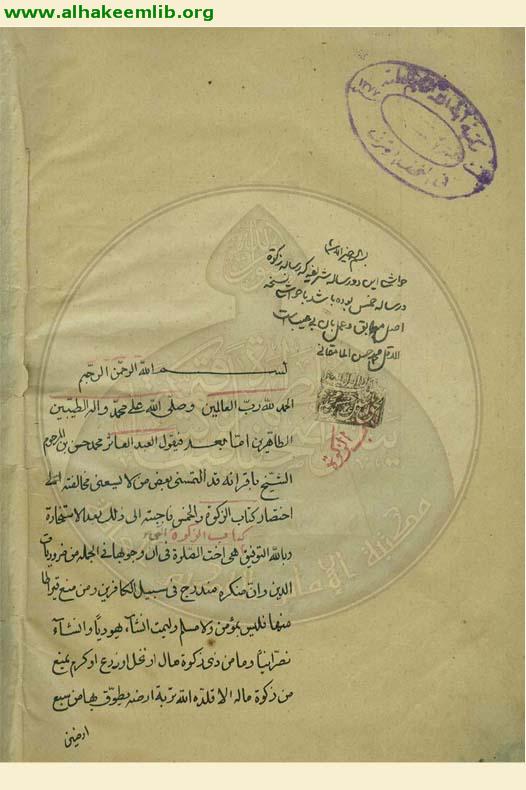 www.alhakeemlib.org
حواشی این دو رساله شریفه که رساله زکوة
ورساله خمس بوده باشد با حواشی نسخه
اصل مطابق وعمل بان بی عیب است
الاقل محمد حسن المامقانی
بسم الله الرحمن الرحیم
الحمد لله ربّ العالمین وصلی الله علی محمد واله الطیبین
الطاهرین امّا بعد فیقول العبد العاثر محمد حسن بن المرحوم
الشیخ باقر انه قد التمسنی بعض من لا یسعنی مخالفته
اختصار کتاب الزکوة والخمس فاجبته الی ذلک بعد الاستخارة
کتاب الزکوة
وبالله التوفیق هی اخت الصلوة فی ان وجوبها فی الجمله من ضروریات
الدین وان منکره مندرج فی سبیل الکافرین ومن منع قیراطا
منها فلیس بمؤمن ولا مسلم ولیمت انشاء یهودیا وانشاء
نصرانیا وما من ذی زکوة مال او نخل او زرع او کرم یمنع
من زکوة ماله الا قلده الله تربة ارضه یطوق بها من سبع
ارضین